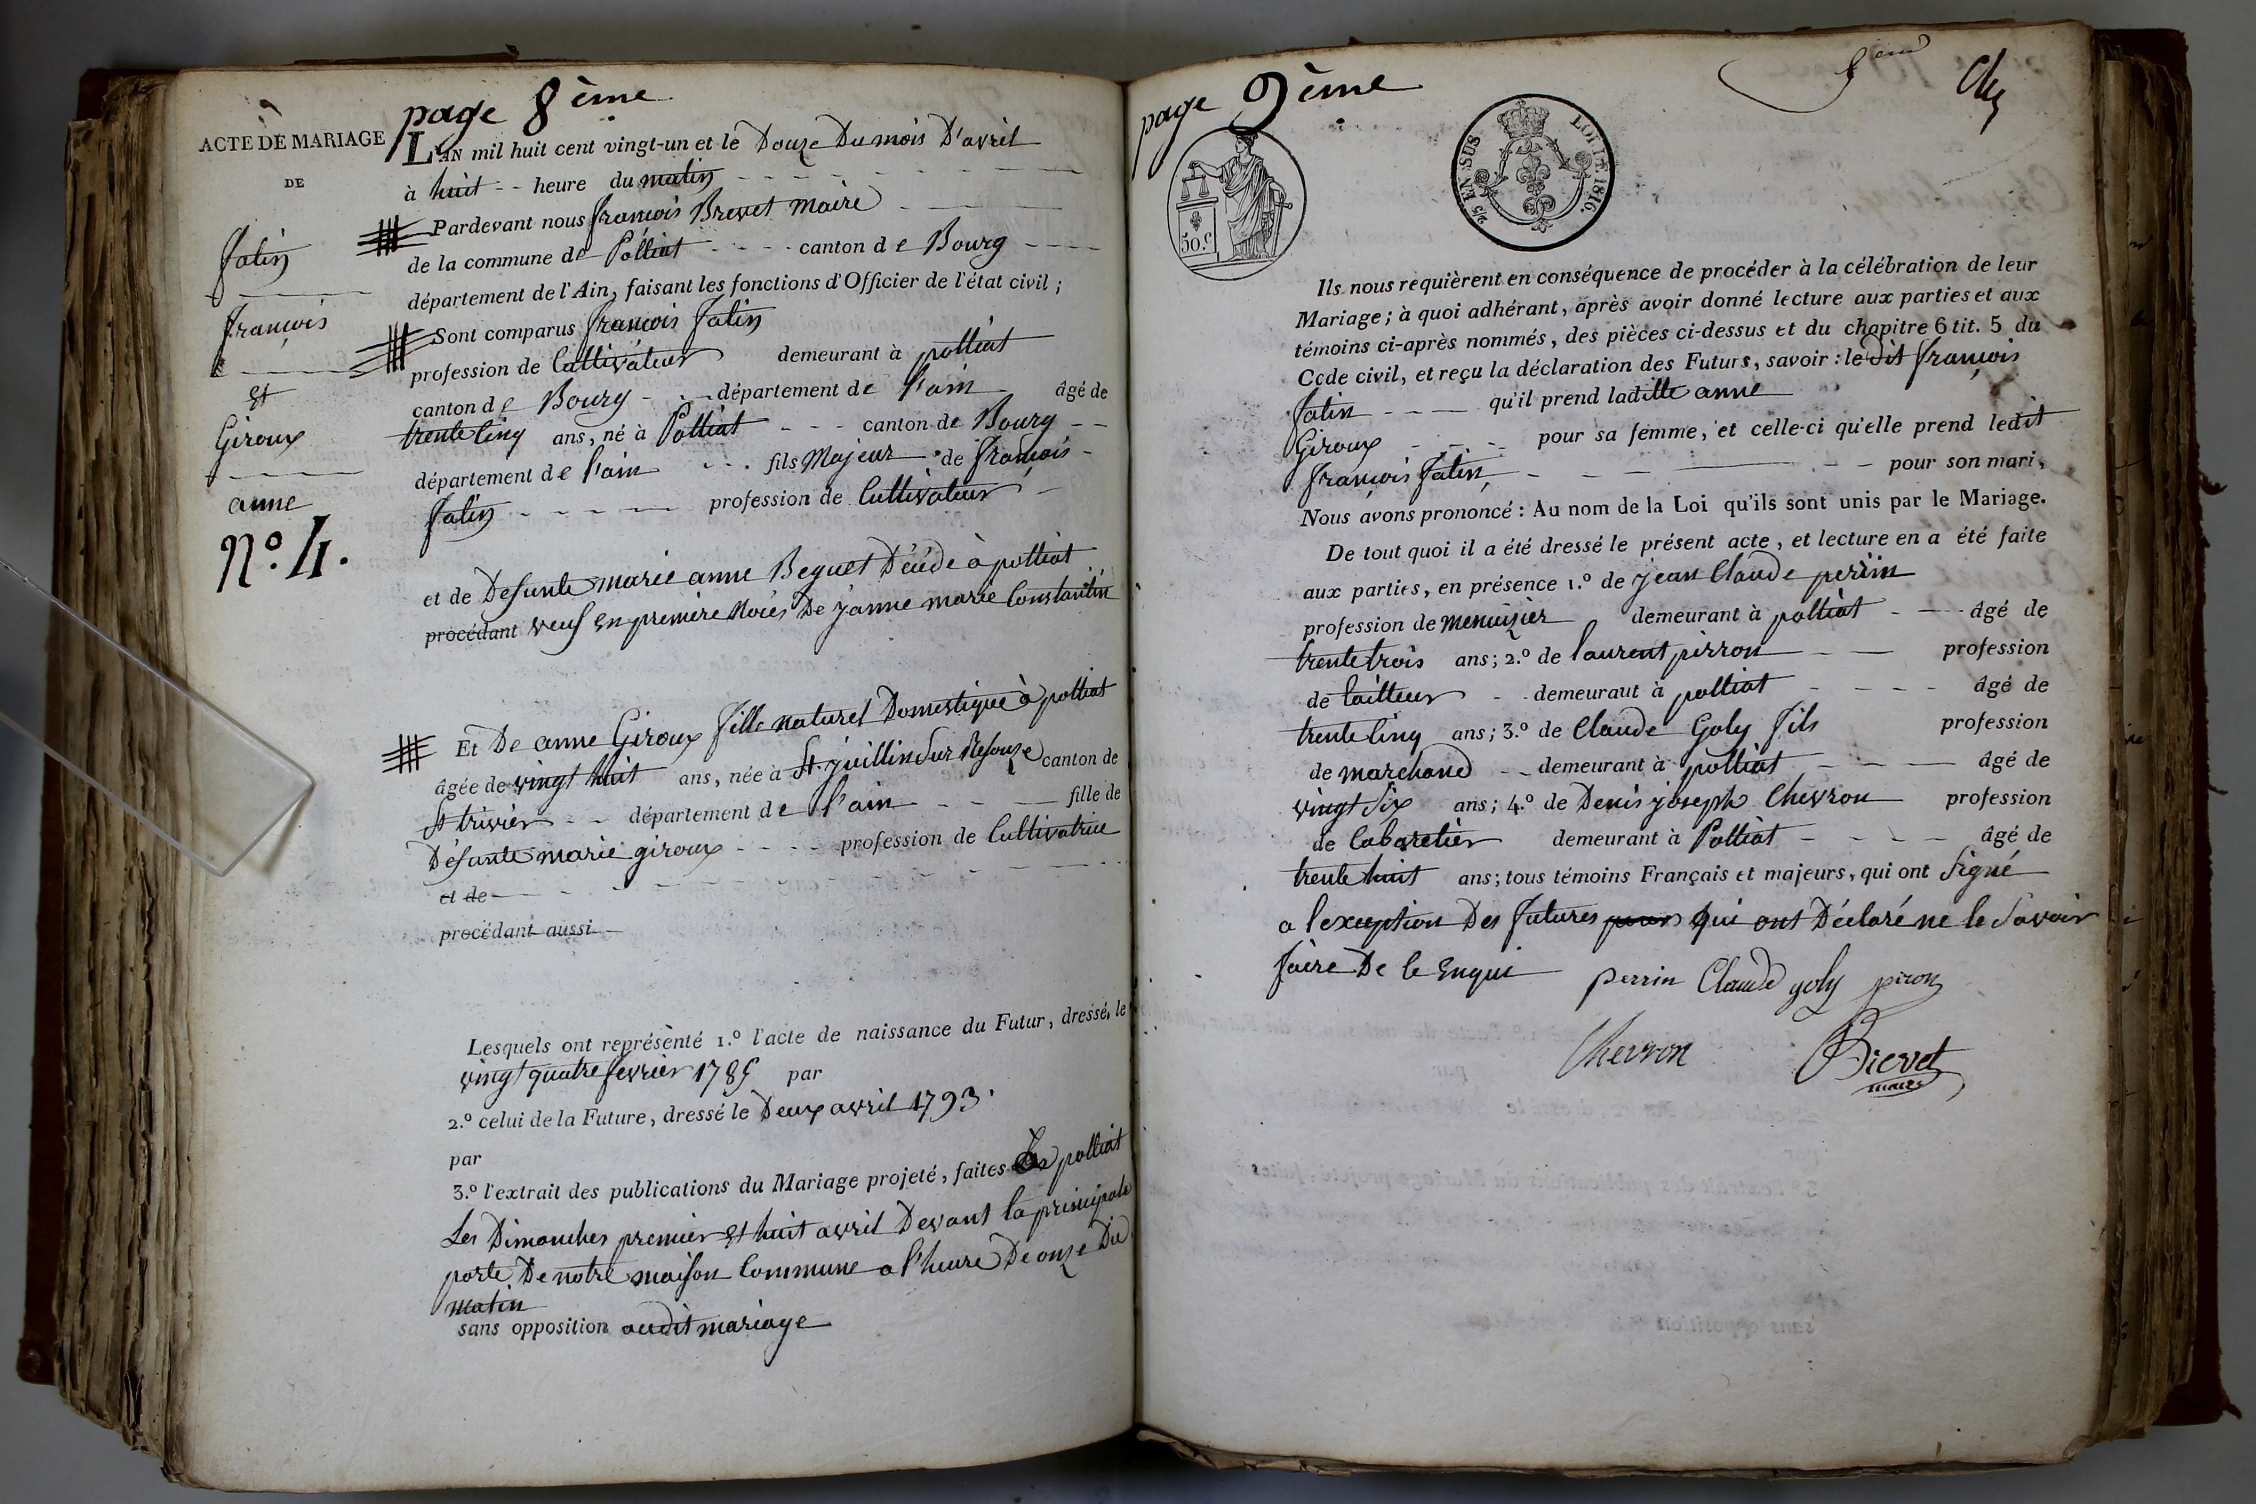 page 8ème
ACTE DE MARIAGE
DE
fatin
françois
et
Giroux
anne
N.º 4.
L'AN mil huit cent vingt-un et le Douze Du mois D'avril
à huit heure du matin
Pardevant nous françois Brevet Maire
de la commune de Polliat canton de Bourg
département de l'Ain, faisant les fonctions d'Officier de l'état civil ;
Sont comparus françois fatin
profession de Cultivateur demeurant à polliat
canton de Bourg département de l'ain âgé de
trente Cinq ans, né à Polliat canton de Bourg
département de l'ain fils Majeur de françois
fatin profession de Cultivateur
et de Defunte marie anne Beguet Décéde à polliat
procédant veuf en premiere Noces De janne marie Constantin
Et De anne Giroux fille naturel Domestique à polliat
âgée de vingt huit ans, née à St. juillin Sur Resouze canton de
St trivier département de l'ain fille de
Défunte marie giroux profession de Cultivatrice
et de
procédant aussi
Lesquels ont représenté 1.º l'acte de naissance du Futur, dressé le
vingt quatre fevrier 1785 par
2.º celui de la Future, dressé le Deux avril 1793.
par
3.º l'extrait des publications du Mariage projeté, faites à polliat
Les Dimanches premier et huit avril Devant la principale
porte De notre maison Commune a l'heure De onze Du
matin
sans opposition audit mariage
page 9ème
50.c
25 EN SUS
LOI DE 1816.
Ils nous requièrent en conséquence de procéder à la célébration de leur
Mariage ; à quoi adhérant, après avoir donné lecture aux parties et aux
témoins ci-après nommés, des pièces ci-dessus et du chapitre 6 tit. 5 du
Code civil, et reçu la déclaration des Futurs, savoir : le dit françois
fatin qu'il prend laditte anne
Giroux pour sa femme, et celle-ci qu'elle prend ledit
françois fatin, pour son mari,
Nous avons prononcé : Au nom de la Loi qu'ils sont unis par le Mariage.
De tout quoi il a été dressé le présent acte, et lecture en a été faite
aux parties, en présence 1.º de jean Claude perrin
profession de menuizier demeurant à polliat âgé de
trente trois ans ; 2.º de laurent pirron profession
de tailleur demeuraut à polliat âgé de
trente Cinq ans ; 3.º de Claude Goly fils profession
de marchand demeurant à polliat âgé de
vingt Six ans ; 4.º de Denis joseph Chevron profession
de Cabaretier demeurant à Polliat âgé de
trente huit ans ; tous témoins Français et majeurs, qui ont Signé
a l'exception Des futures qui ont Déclaré ne le Savoir
faire De le Enqui
perrin Claude goly piron
Chevron Brevet
maire